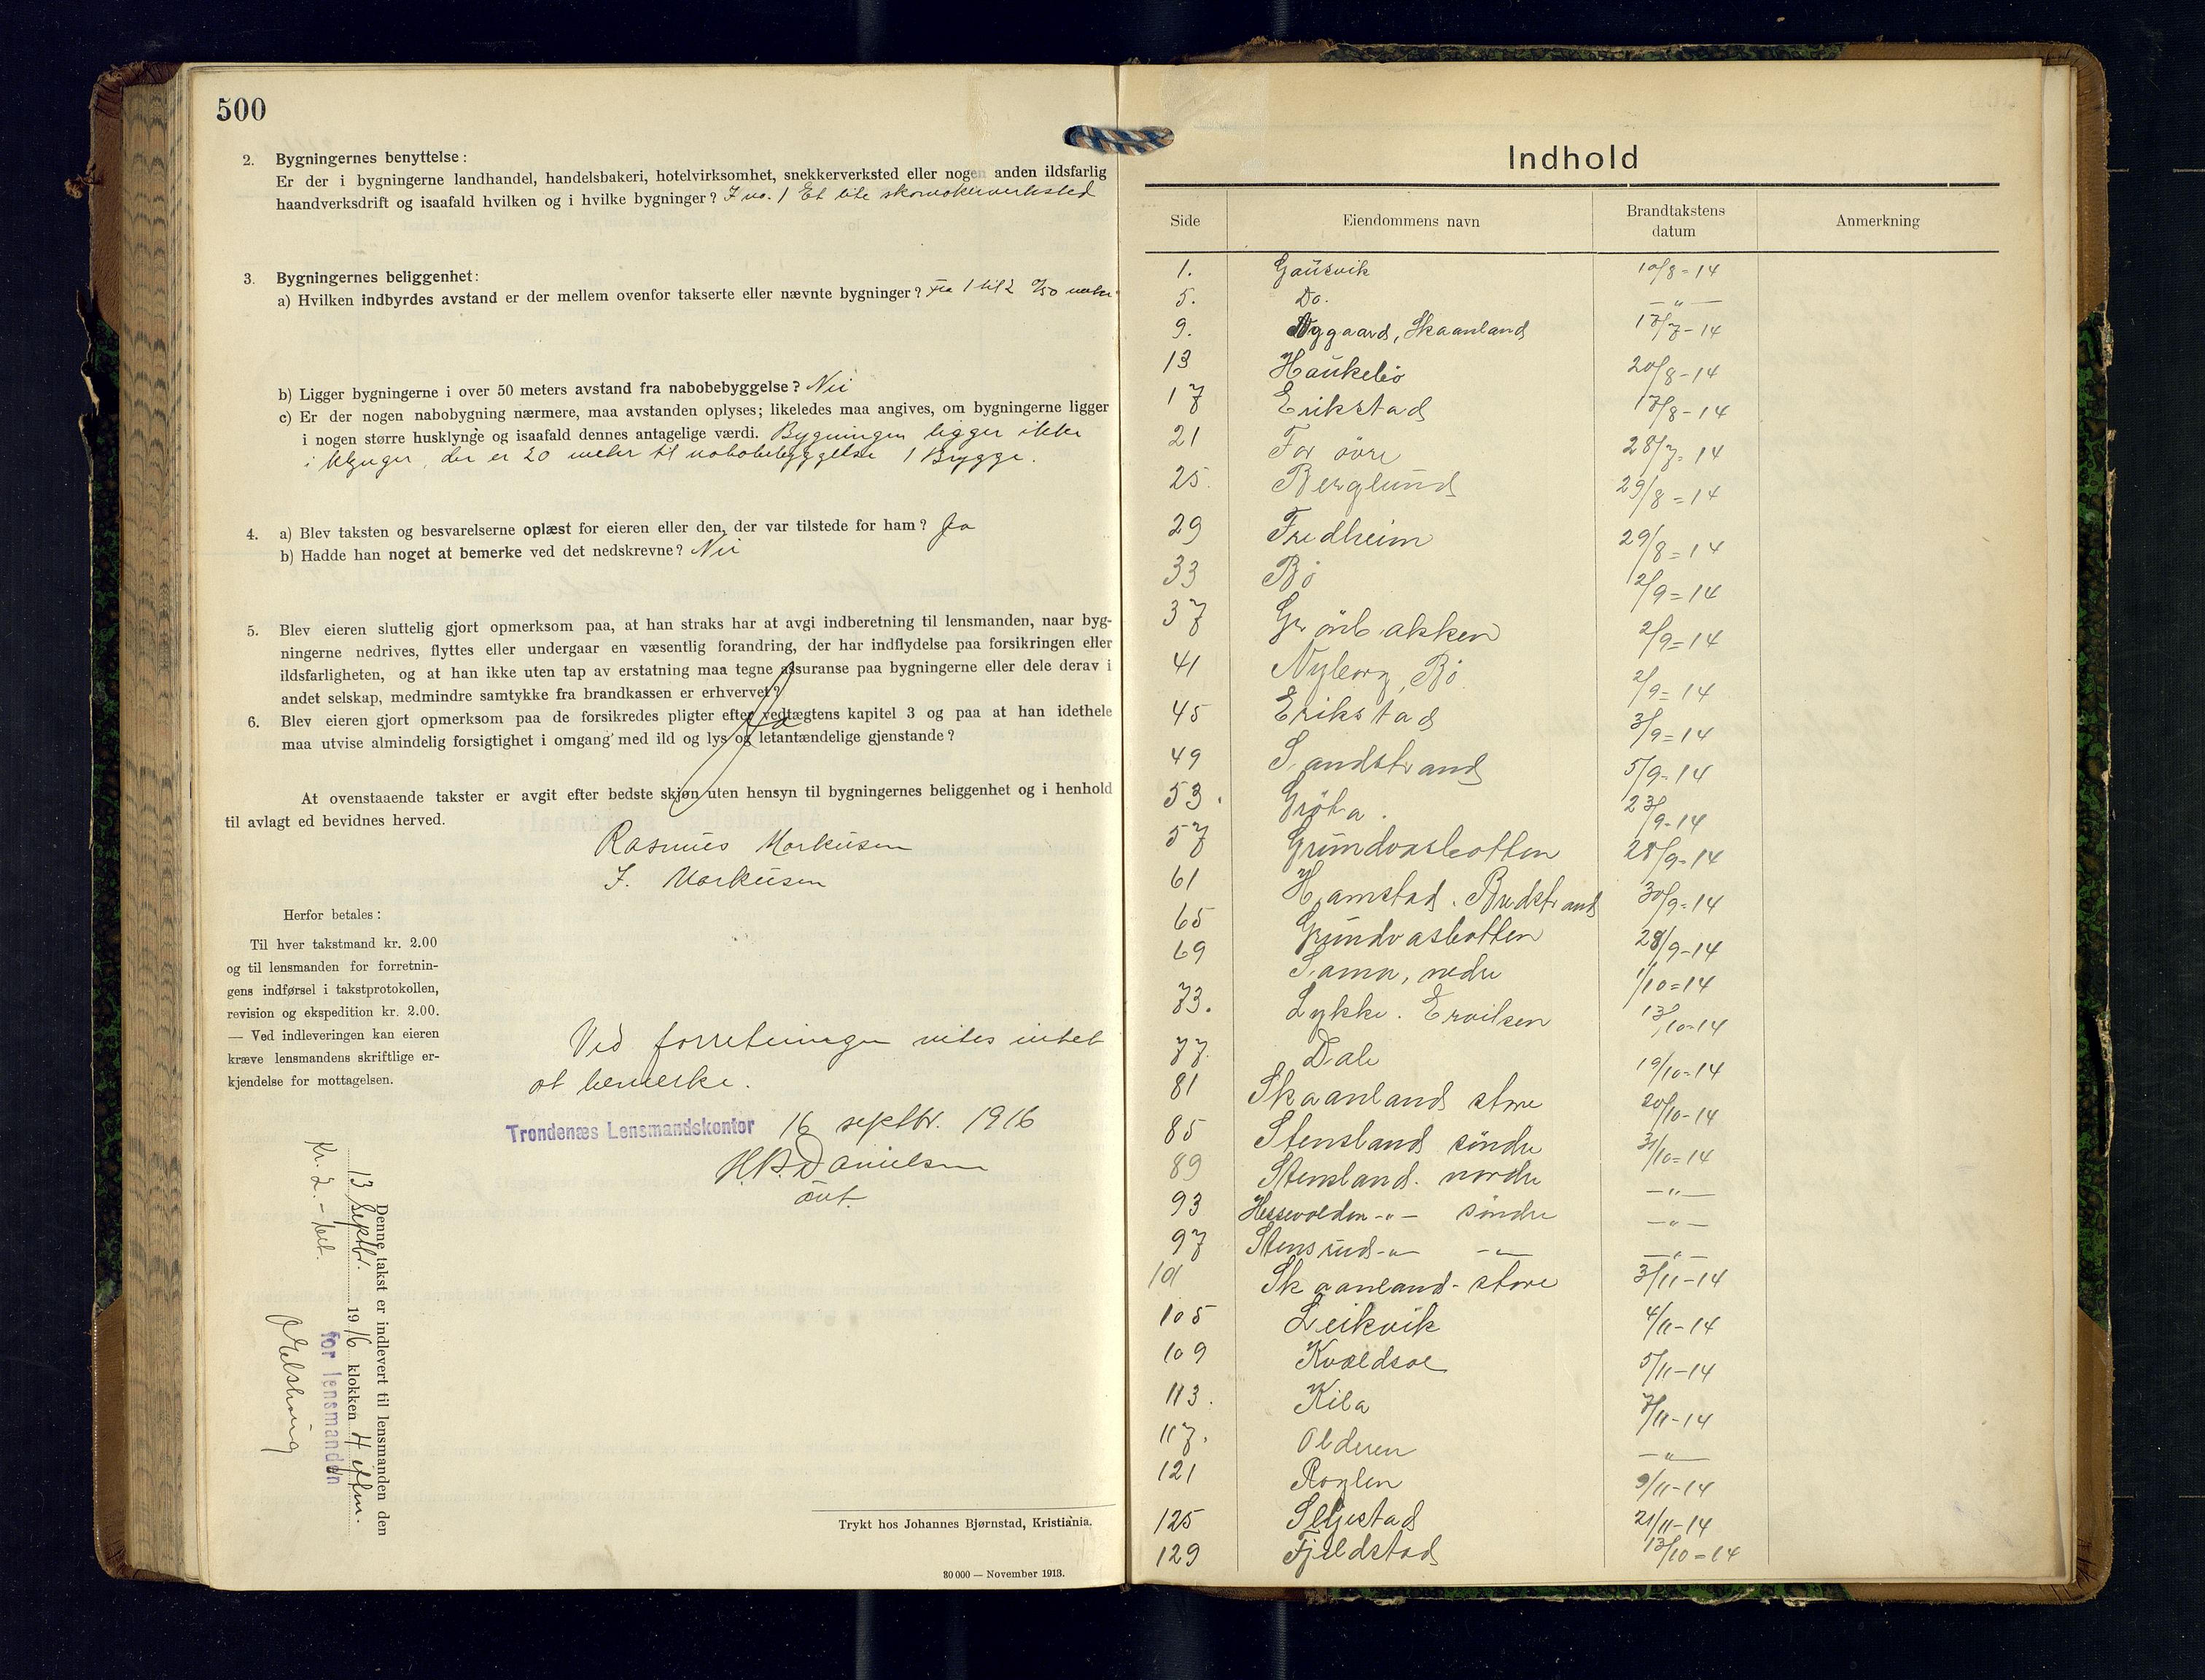 500
2. Bygningernes benyttelse:
Er der i bygningerne landhandel, handelsbakeri, hotelvirksomhet, snekkerverksted eller nogen anden ildsfarlig
haandverksdrift og isaafald hvilken og i hvilke bygninger? I no. 1 Et lite skomokerverksted
3. Bygningernes beliggenhet:
a) Hvilken indbyrdes avstand er der mellem ovenfor takserte eller nævnte bygninger? Fra 1 til 2 %50 meter
b) Ligger bygningerne i over 50 meters avstand fra nabobebyggelse? Nei
c) Er der nogen nabobygning nærmere, maa avstanden oplyses; likeledes maa angives, om bygningerne ligger
i nogen større husklynge og isaafald dennes antagelige værdi. Bygningen ligger ikke
i klynger, der er 20 meter til nabobebyggelse 1 Brygge.
4. a) Blev taksten og besvarelserne oplæst for eieren eller den, der var tilstede for ham? Ja
b) Hadde han noget at bemerke ved det nedskrevne? Nei
5. Blev eieren sluttelig gjort opmerksom paa, at han straks har at avgi indberetning til lensmanden, naar byg-
ningerne nedrives, flyttes eller undergaar en væsentlig forandring, der har indflydelse paa forsikringen eller
ildsfarligheten, og at han ikke uten tap av erstatning maa tegne assuranse paa bygningerne eller dele derav i
andet selskap, medmindre samtykke fra brandkassen er erhvervet?
6. Blev eieren gjort opmerksom paa de forsikredes pligter efter vedtægtens kapitel 3 og paa at han idethele
maa utvise almindelig forsigtighet i omgang med ild og lys og letantændelige gjenstande?
Ja
At ovenstaaende takster er avgit efter bedste skjøn uten hensyn til bygningernes beliggenhet og i henhold
til avlagt ed bevidnes herved.
Rasmus Markusen
J. Markusen
Herfor betales:
Til hver takstmand kr. 2.00
og til lensmanden for forretnin-
gens indførsel i takstprotokollen,
revision og ekspedition kr. 2.00.
— Ved indleveringen kan eieren
kræve lensmandens skriftlige er-
kjendelse for mottagelsen.
Ved forretningen vites intet
at bemerke.
Trondenæs Lensmandskontor 16 septbr. 1916
H.B. Danielsen
aut.
Denne takst er indlevert til lensmanden den
13 Septbr. 1916 klokken 4 eftm.
for lensmanden
Kr. 2.- bet.
Trykt hos Johannes Bjørnstad, Kristiania.
30 000 — November 1913.
Indhold
Side Eiendommens navn Brandtakstens datum Anmerkning
1. Gausvik 10/8=14
5. Do. —"—
9. Nygaard, Skaanland 17/7-14
13 Haukebø 20/8-14
17 Erikstad 17/8-14
21 Før övre 28/7=14
25. Berglund 29/8=14
29 Fredheim 29/8=14
33 Bö 2/9=14
37 Grönbakken 2/9=14
41 Nyborg, Bö 2/9=14
45 Erikstad 3/9=14
49 Sandstrand 5/9=14
53. Gröta. 23/9-14
57 Grundvasbotten 28/9=14
61 Hamstad. Bredstrand 30/9=14
65 Grundvasbotten 28/9-14
69 Sama, nedre 1/10=14
73. Lykke. Erviksen 13/10=14
77. Dale 19/10=14
81 Skaanland store 20/10-14
85 Stensland söndre 31/10=14
89 Stensland. nordre —"—
93 Hessevolden -"- söndre —"—
97 Stensrud -"- -"- —"—
101 Skaanland- store 3/11-14
105 Leikvik 4/11-14
109 Kvældsoe 5/11-14
113. Kila 7/11-14
117. Olderen —"—
121 Røglen 9/11-14
125 Slyestad 21/11-14
129 Fjeldstad 13/10=14